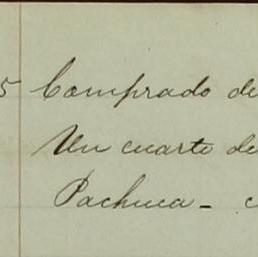 5 Comprado de
Un cuarto de
Pachuca - c